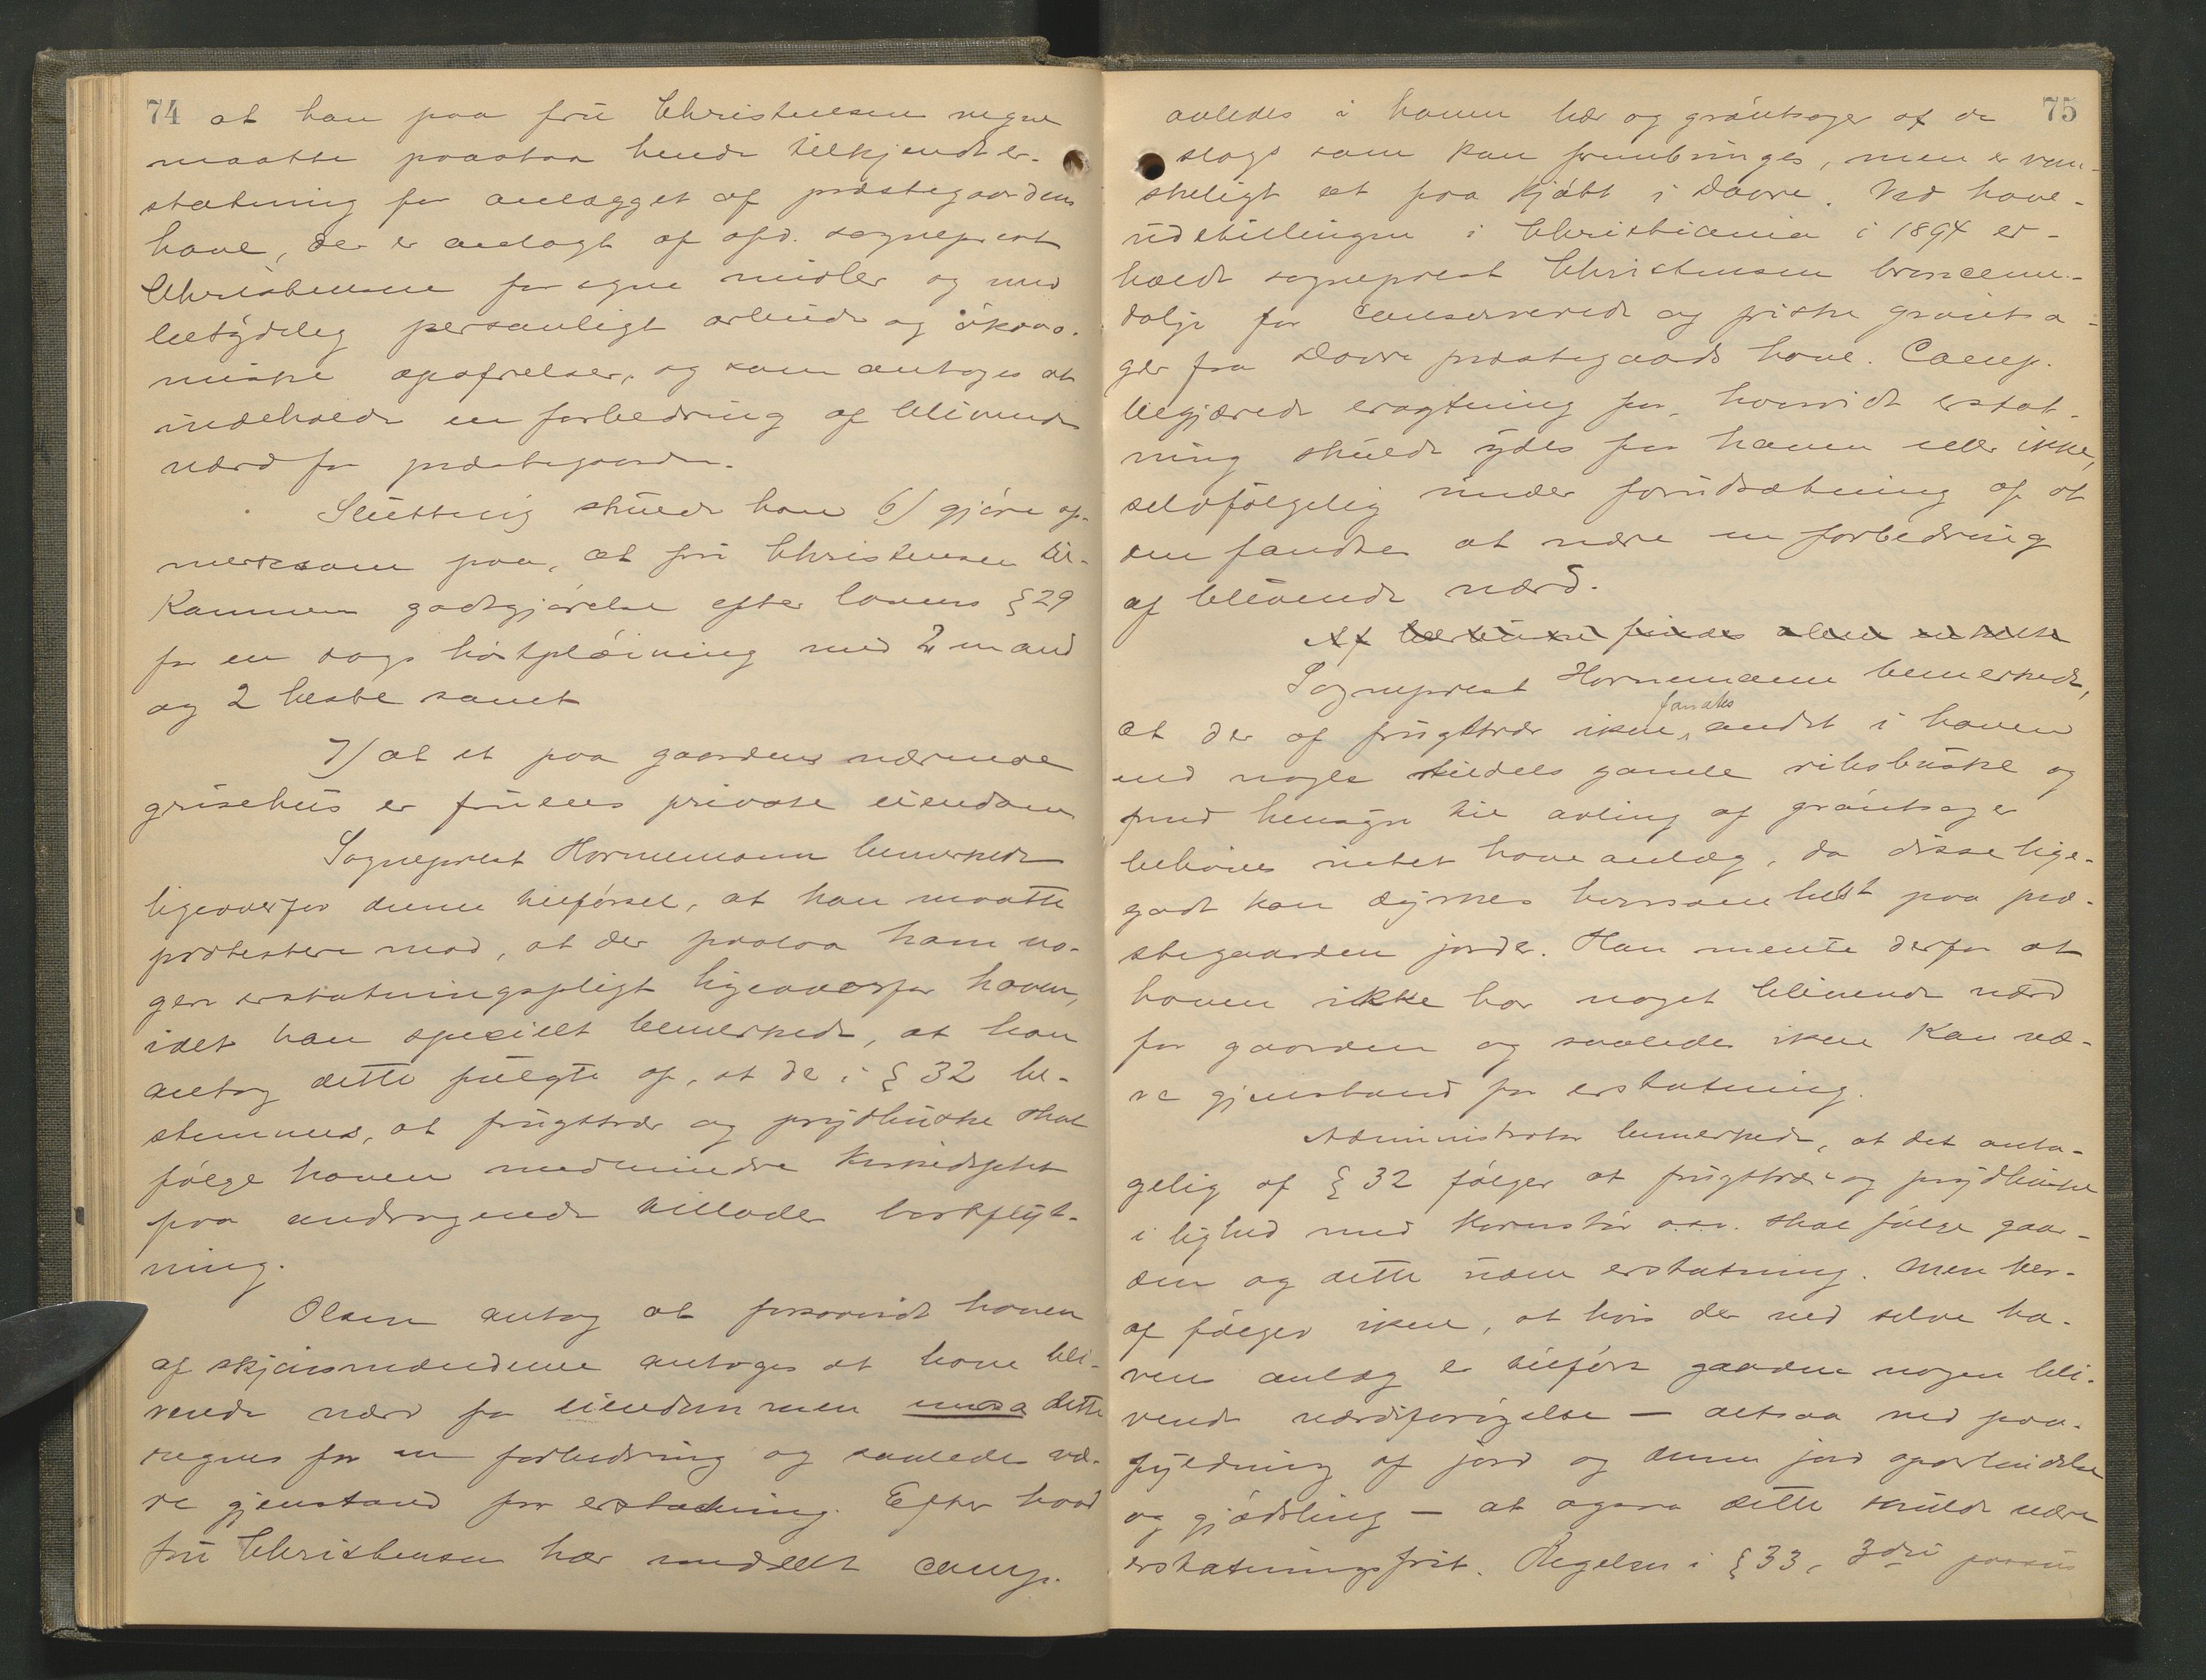 74
at han paa fru Christensens vegne
maatte paastaa hende tilkjendt er-
statning for anlægget af præstegaardens
have, der er anlagt af afd. sogneprest
Christensen for egne midler og med
betydelig personligt arbeide og økono-
miske opofrelser, og som antages at
indeholde en forbedring af blivende
værd for præstegaarden.
Slutteig skulde han 6) gjøre op-
merksom paa, at fru Christensen til-
kommer godtgjørelse efter lovens § 29
for en dags høstpløining med 2 mand
og 2 heste samt
7) at et paa gaarden værende
grisehus er fruens private eiendom
Sogneprest Hornemann bemerkede
ligeoverfor denne tilførsel, at han maatte
protestere mod, at der paalaa ham no-
gen erstatningspligt ligeoverfor haven,
idet han specielt bemerkede, at han
antog dette fulgte af, at de i § 32 be-
stemmes, at frugttrær og prydbuske skal
følge haven medmindre Kirkedeptet
paa andragende tillader bortflyt-
ning.
Olsen antog at forsaavidt haven
af skjønsmændene antages at have bli-
vende værd for eiendommen maa dette
regnes for en forbedring og saaledes væ-
re gjenstand for erstatning. Efter hvad
fru Christensen har meddelt comp.
75
avledes i haven bær og grøntsager af de
slags som kan frembringes, men er van-
skeligt at faa kjøbt i Dovre. Ved have-
udstillingen i Christiania i 1894 er-
holdt sogneprest Christensen broncemе-
dalje for conserverede og friske grøntsa-
ger fra Dovre præstegaards have. Comp.
begjærede eragtning for, hvorvidt erstat-
ning skulde ydes for haven eller ikke,
selvfølgelig under forudsætning af at
den fandtes at være en forbedring
af blivende værd.
Af bærbuske findes
Sogneprest Hornemann bemerkede,
at der af frugttrær ikke fandtes andet i haven
end nogle tildels gamle ribsbuske og
med hensyn til avling af grøntsager
behøves intet haveanlæg, da disse lige-
godt kan dyrkes hvorsomhelst paa præ-
stegaarden jorde. Han mente derfor at
haven ikke har noget blivende værd
for gaarden og saaledes ikke kan væ-
re gjenstand for erstatning.
Administrator bemerkede, at det anta-
gelig af § 32 følger at frugttrær og prydbuske
i lighed med kornstør o.s.v. skal følge gaar-
den og dette uden erstatning. Men her-
af følger ikke, at hvis der ved selve ha-
vens anlæg er tilført gaarden nogen bli-
vende værdiforøgelse – altsaa ved paa-
fyldning af jord og denne jord oparbeidelse
og gjødsling – at ogsaa dette skulde være
erstatningsfrit. Regelen i § 33, 3die passus